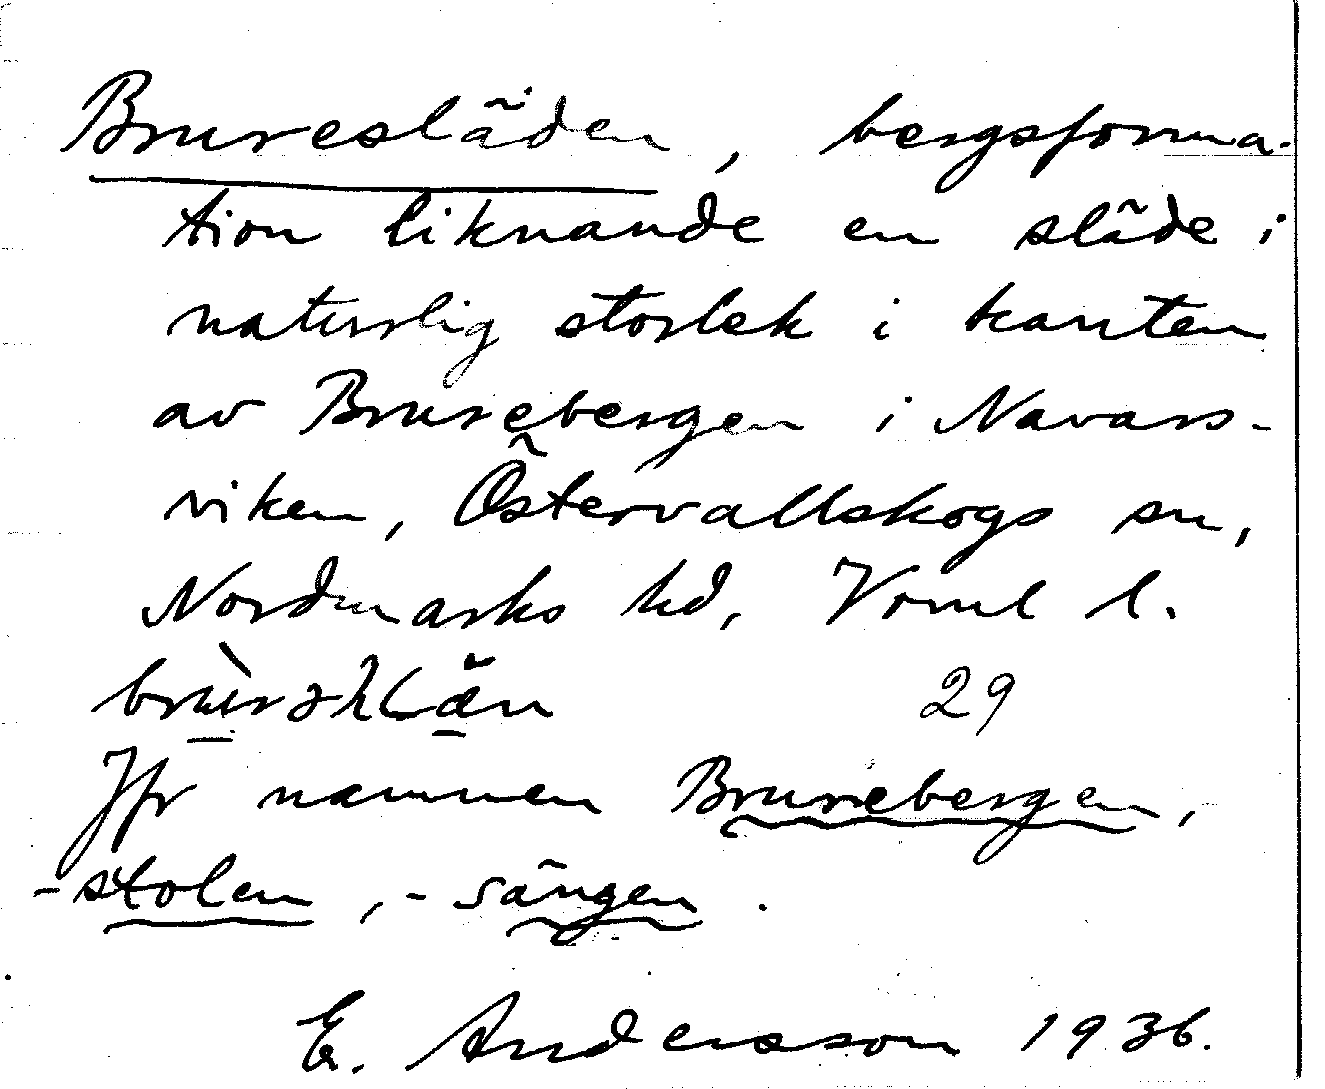 Brureslãden, bergsforma-
tion liknande en släde i
naturlig storlek i kanten
av Brurebergen i Navars-
viken, Östervallskogs sn,
Nordmarks hd, Vrml l.
29
Jfr namnen Brurebergen,
-stolen, -sängen.
E. Andersson 1936.